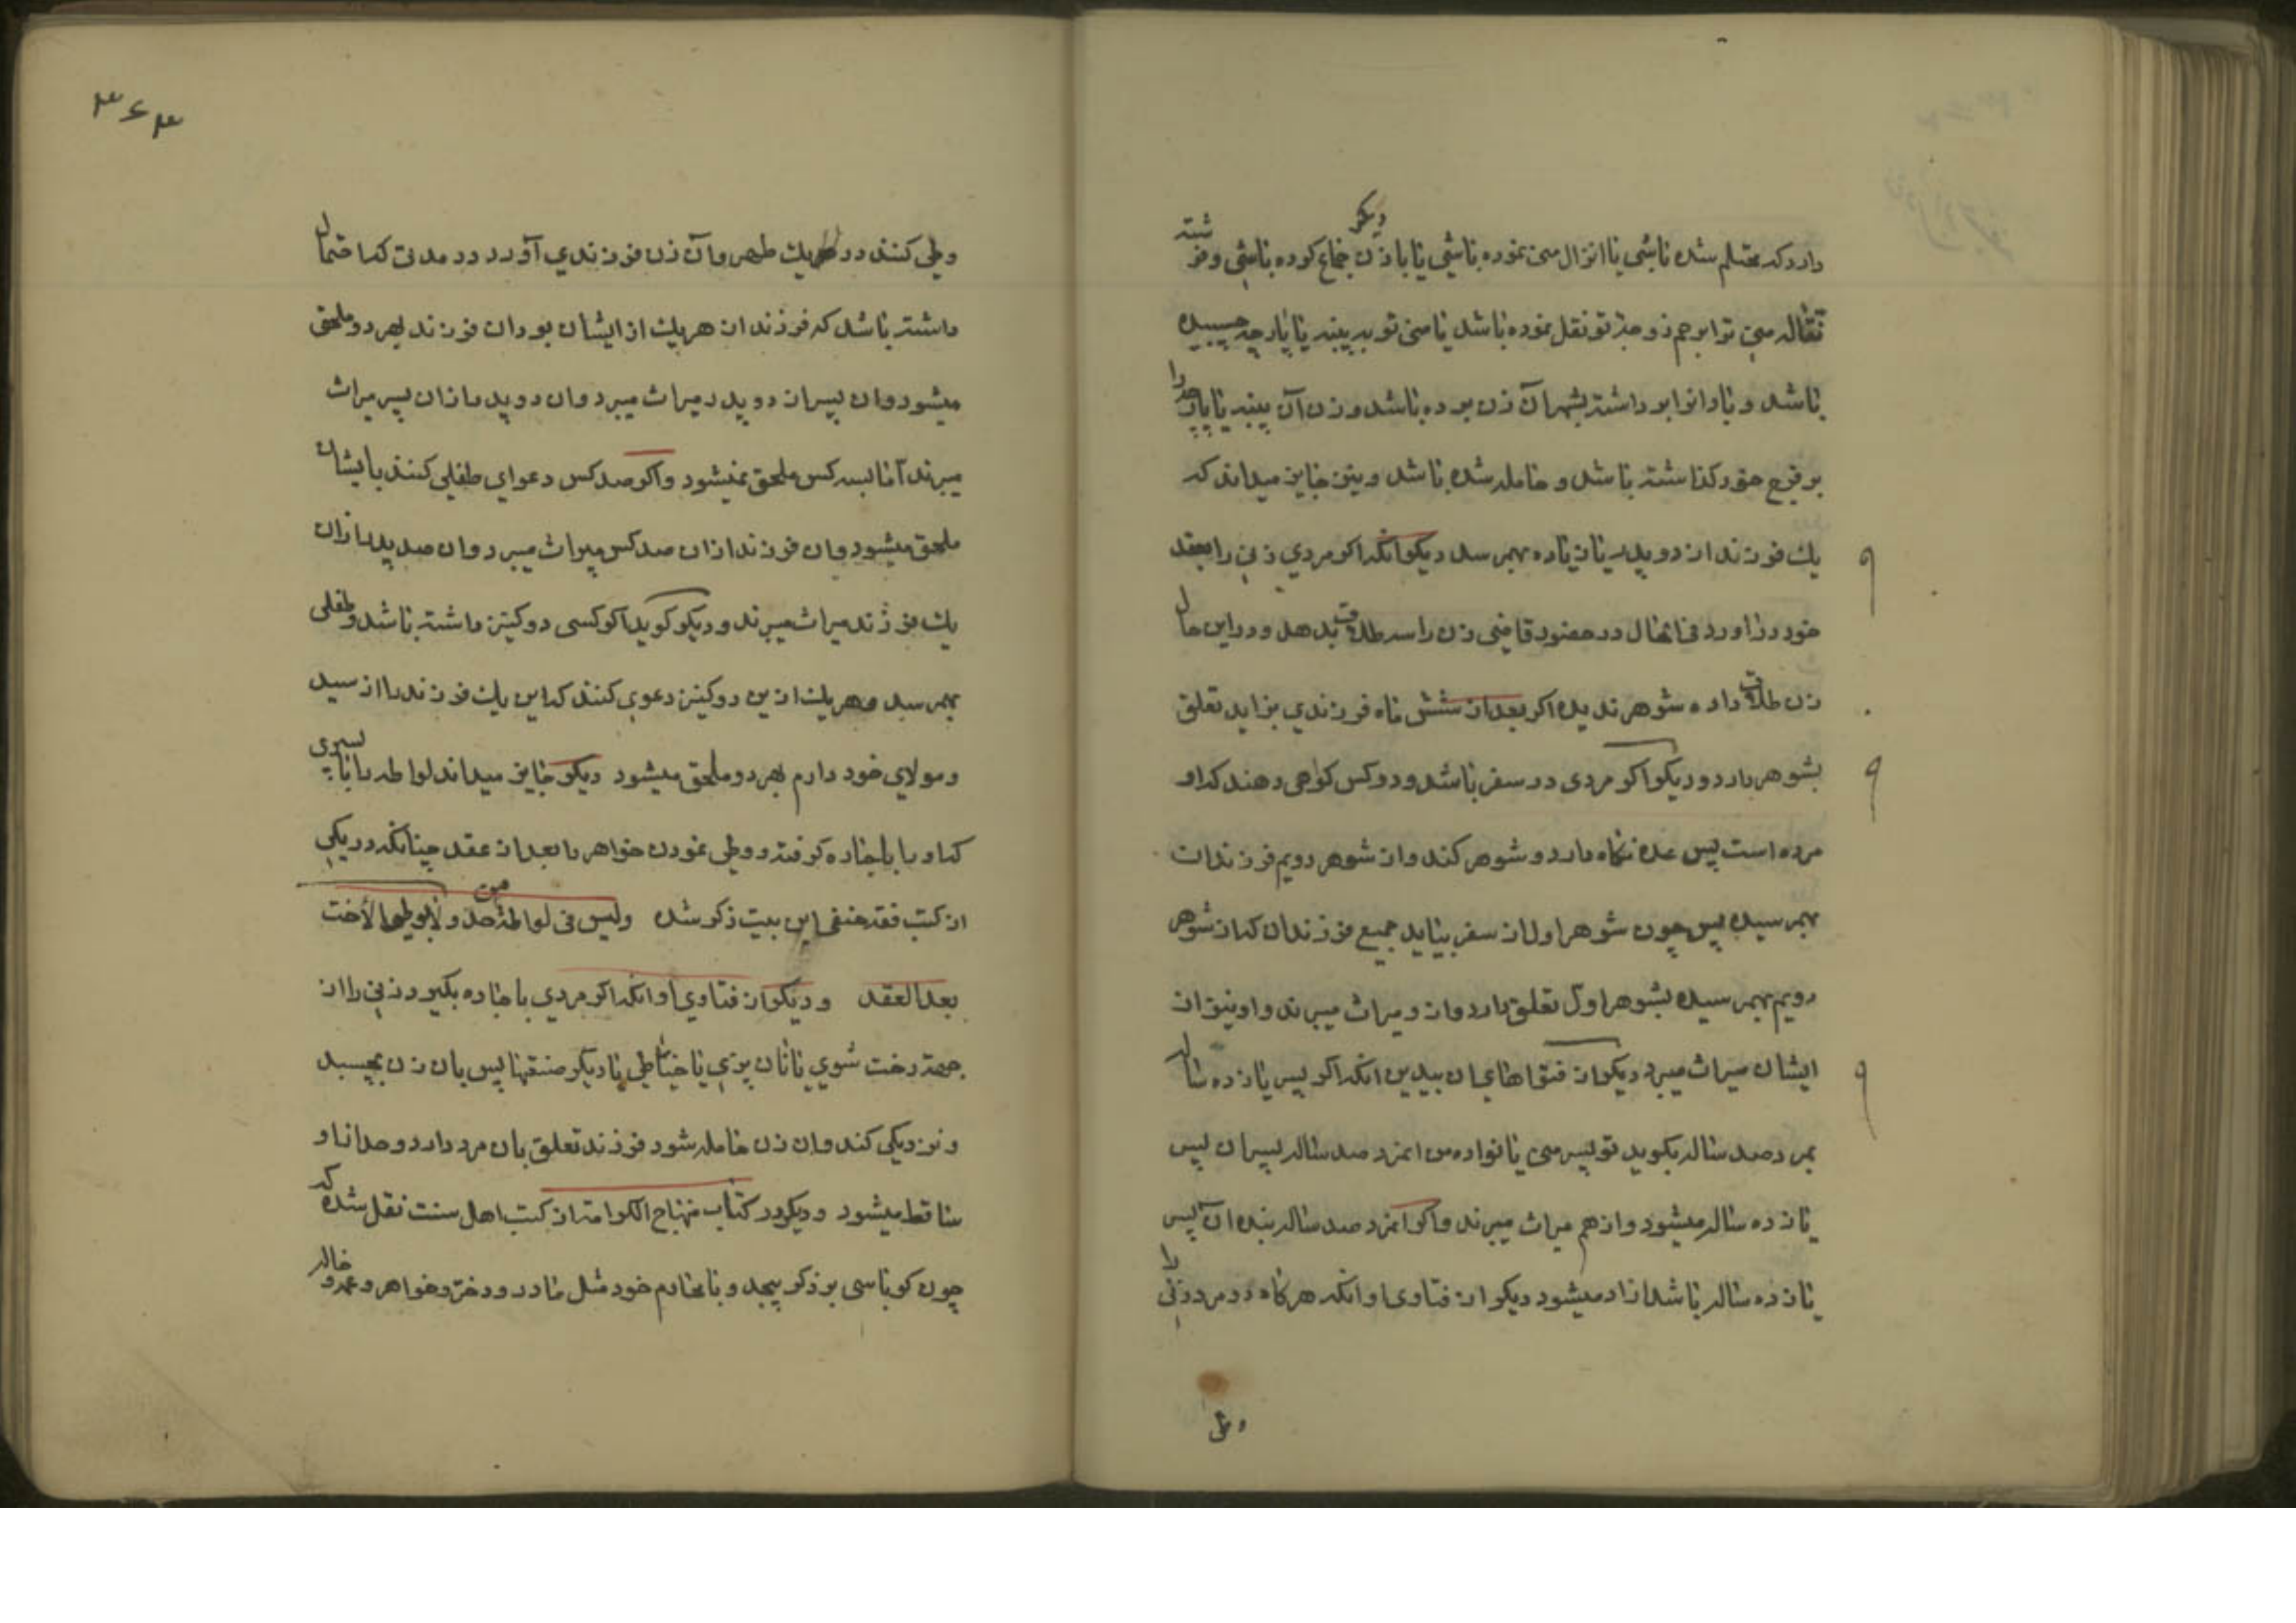 دارد که محتلم شده باشی یا انزال منی نموده باشی یا با زن دیگر جماع کرده باشی و فرشته
نقاله منی ترا برحم زوجهٔ تو نقل نموده باشد یا منی تو به پنبه یا پارچه چسبیده
باشد و باد انرا برداشته بشهر آن زن برده باشد و زن آن پنبه یا پارچه را
بر فرج خود گذاشته باشد و حامله شده باشد و نیز جایز میداند که
یك فرزند از دو پدر یا زیاده بهمرسد دیکر آنکه اکر مردی زنی را بعقد
خود درآورد فی الحال در حضور قاضی زن را سه طلاق بدهد و در این حال
زن طلاق داده شوهر ندیده اکر بعد از شش ماه فرزندی بزاید تعلق
بشوهر دارد و دیکر اکر مردی در سفر باشد و دو کس کواهی دهند که او
مرده است پس عده نکاه دارد و شوهر کند و از شوهر دویم فرزندان
بهمرسیده پس چون شوهر اول از سفر بیاید جمیع فرزندان که از شوهر
دویم بهمرسیده بشوهر اول تعلق دارد و از و میراث میبرند و او نیز از
ایشان میراث میبرد دیکر از فتواهای ان بیدین انکه اکر پسر یازده ساله
بمرد صد ساله بکوید تو پسر منی یا نواده من انمرد صد ساله پسر ان پسر
یازده ساله میشود و از هم میراث میبرند و اکر انمرد صد ساله بنده ان پسر
یازده ساله باشد ازاد میشود دیکر از فتاوی او انکه هرکاه دو مرد زنی را
وطی
۳۶۳
وطی کنند در یك طهر و آن زن فرزندی آورد در مدتی که احتمال
داشته باشد که فرزند از هر یك از ایشان بود ان فرزند بهر دو ملحق
میشود و ان پسر از دو پدر میراث میبرد و ان دو پدر از ان پسر میراث
میبرند اما بسه کس ملحق نمیشود و اکر صد کس دعوای طفلی کنند بایشان
ملحق میشود و ان فرزند از ان صد کس میراث میبرد و ان صد پدر از ان
یك فرزند میراث میبرند و دیکر کوید اکر کسی دو کنیز داشته باشد و طفلی
بهمرسد و هر یك ازین دو کنیز دعوی کنند که این یك فرزند را از سید
و مولای خود دارم بهر دو ملحق میشود دیکر جایز میداند لواطه را با پسری
که او را باجاره کرفته و وطی نمودن خواهر را بعد از عقد چنانکه در یکی
از کتب فقه حنفی این بیت ذکر شده ولیس فی لواطة من حد ولا بوطی الاخت
بعد العقد و دیکر از فتاوی او انکه اکر مردی باجاره بکیرد زنی را از
جهة رخت شوی یا نان پزی یا خیاطی یا دیکر صنعتها پس بان زن بچسبد
و نزدیکی کند و ان زن حامله شود فرزند تعلق بان مرد دارد و حد از او
ساقط میشود و دیکر در کتاب منهاج الکرامة از کتب اهل سنت نقل شده که
چون کرباسی بر ذکر بپیچد و با محارم خود مثل مادر و دختر و خواهر و عمه و خاله